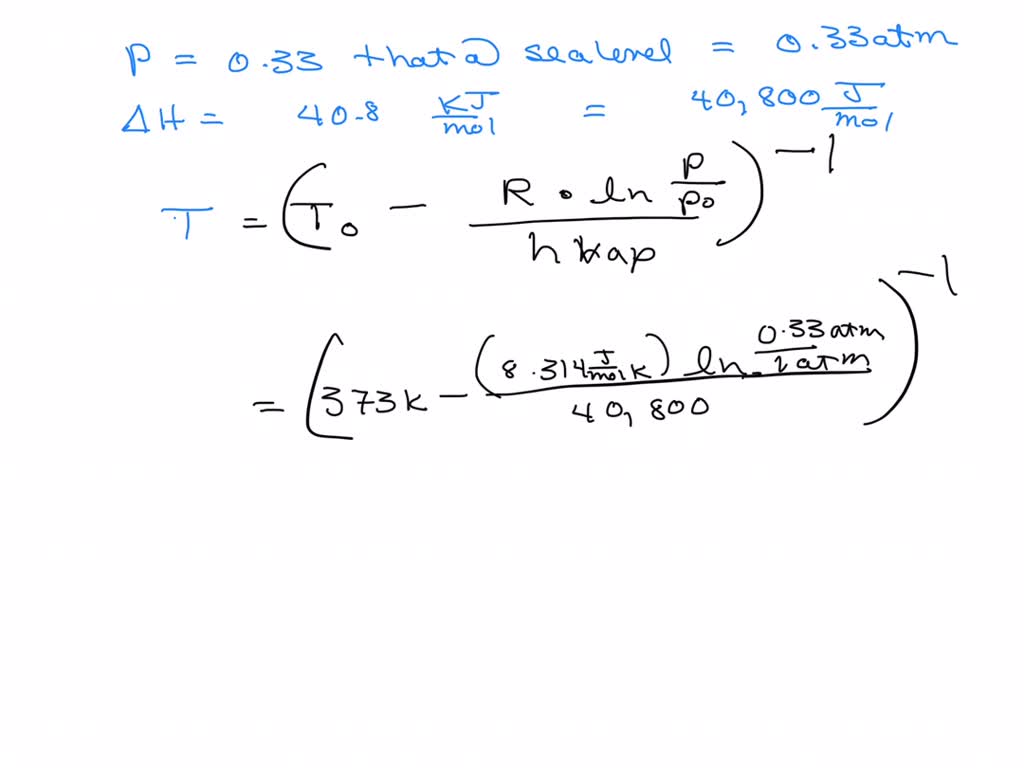 P = 0.33 that @ sea level = 0.33 atm
ΔH = 40.8 KJ/mol = 40,800 J/mol
T = (T₀ − R • ln P/P₀ / h vap)⁻¹
= (373K − (8.314 J/mol K) ln 0.33 atm/1 atm / 40,800)⁻¹